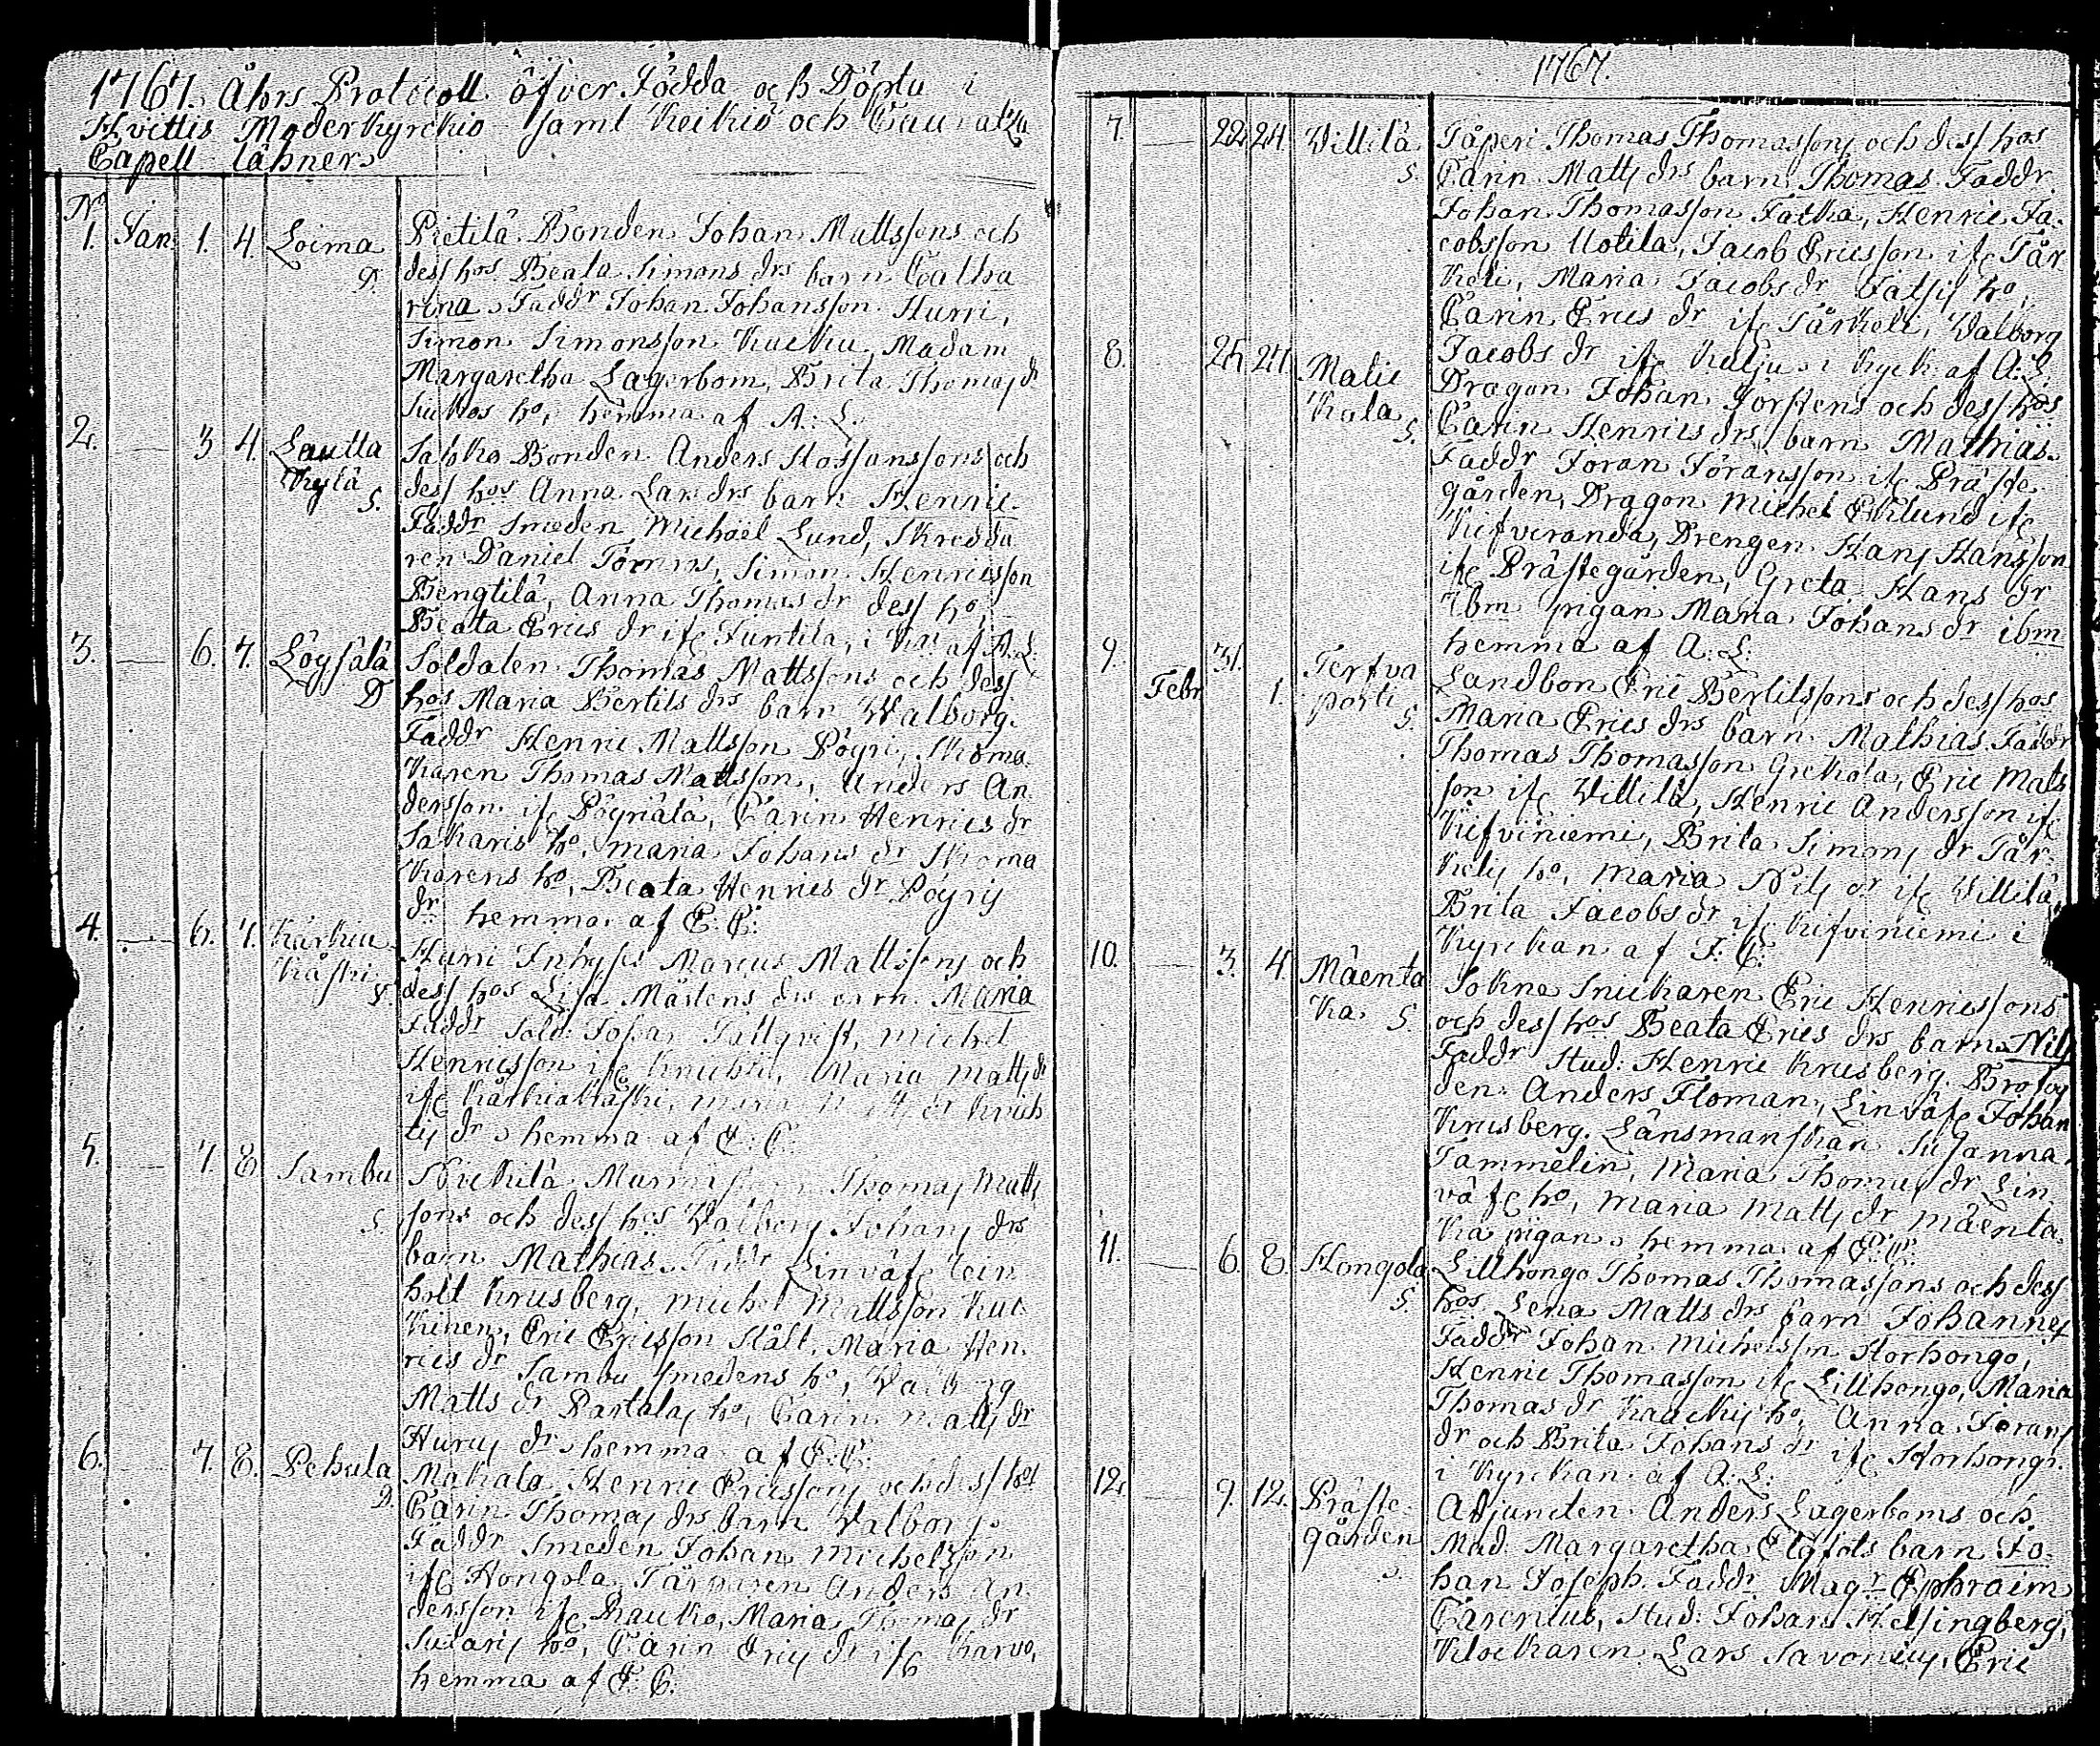 1767. Åhrs Protocoll öfver Födda och Döpta i
Hvittis Moderkyrckio samt Keikiö och Cauvatza
Capell lähner
No
1. Jan. 1. 4. Loima D. Pietilä Bonden Johan Mattssons och
dess hos Beata Simons drs barn Catha
rina Faddr Johan Johansson Hurri,
Simon Simonsson Kucku, Madam
Margaretha Lagerbom, Brita Thomas dr
ho, hemma af A: L.
2. — 3 4. Lautta Kylä S. Bonden Anders och
dess hos Anna Lars drs barn Henric
Faddr Smeden Michaël Lund, Skredda
ren Daniel Törnrs, Simon Henricsson
Bengtilä, Anna Thomas dr dess ho,
Beata Erics dr ifr Juntila, i af A: L.
3. — 6. 7. D Soldaten Thomas Mattssons och dess
hos Maria Bertils drs barn Walborg.
Faddr Henric Mattsson Pögri, Skoma
karen Thomas Mattsson, Anders An
dersson ifr Pögriälä, Carin Henrics dr
Sakaris ho, Maria Johans dr Skoma
karens ho, Beata Henrics dr Pögris
dr hemma af E: C:
4. — 6. 7. Karhia Kåski Hurri Inhyses Marcus Mattssons och
dess hos Lisa Mårtens drs barn Maria
Faddr Sold: Johan Tallqvist, Michel
Henricsson ifr Maria Matts dr
ifr Karhiakåski, Maria dr
dr hemma af E: C.
5. — 7. 8. Sambu S. Thomas Matts
sons och dess hos Walborg Johans drs
barn Mathias. Faddr Linväfr Rein
holt Krusberg, Michel Mattsson Kuc
kinen, Eric Ericsson Stålt, Maria Hen
rics dr Sambu Smedens ho, Walborg
Matts dr Partalas ho, Carin Matts dr
Hurris dr hemma af E: C:
6. — 7. 8. Pehula D. Makala Henric Ericssons och dess hos
Carin Thomas drs barn Walborg.
Faddr Smeden Johan Michelsson
ifr Hongola, Anders An
dersson ifr Rauko, Maria Thomas dr
ho, Carin Erics dr ifr
hemma af E: C.
1767.
7. — 22. 24. Villilä S. Täperi Thomas Thomassons och dess hos
Carin Matts drs barn Thomas. Faddr
Johan Thomasson Fatka, Henric Ja
cobsson Uotila, Jacob Ericsson ifr Tår
keli, Maria Jacobs dr ho,
Carin Erics dr ifr Tårkeli, Walborg
Jacobs dr ifr Kalju i Kyrk. af A: L.
8. 24. Malii Kala S. Dragon Johan Torstens och dess hos
Carin Henrics drs barn Mathias.
Faddr Joran Jöransson ifr Präste
gården, Dragon Michel Eklund ifr
Kifveranda, Drengen Hans Hansson
ifr Prästegården, Greta Hans dr
ibm pigan Maria Johans dr ibm
hemma af A: L:
9. 31. Febr. 1. Terfva porti S. Landbon Eric Bertilssons och dess hos
Maria Erics drs barn Mathias Faddr
Thomas Thomasson Grekola, Eric Mats
son ifr Villilä, Henric Andersson ifr
Kifviniemi, Brita Simons dr Tår
kelis ho, Maria Nils dr ifr Villilä,
Brita Jacobs dr ifr Kifviniemi i
Kyrckan af E: C:
10. — 3. 4. Mäenta Ka S Sokne Snickaren Eric Henricssons
och dess hos Beata Erics drs barn Nils
Faddr Stud: Henric Krusberg. Brofog
den Anders Floman, Linväfr Johan
Krusberg. Länsmanskan Susanna
Tammelin, Maria Thomas dr Lin
väfr ho, Maria Matts dr Mäenta
ka pigan hemma af E: C:
11. — 6. 8. Hongola S. Lillhongo Thomas Thomassons och dess
hos Lena Matts drs barn Johannes
Faddr Johan Michelsson Storhongo,
Henric Thomasson ifr Lillhongo, Maria
Thomas dr ho, Anna Jorans
dr och Brita Johans dr ifr Storhongo.
i Kyrckan af A: L:
12. — 9. 12. Präste gården S. Adjuncten Anders Lagerboms och
Mad. Margaretha Elgfots barn Jo
han Joseph. Faddr Magr Ephraim
Carenius, Stud: Johan Helsingberg,
Klockaren Lars Savonius, Eric